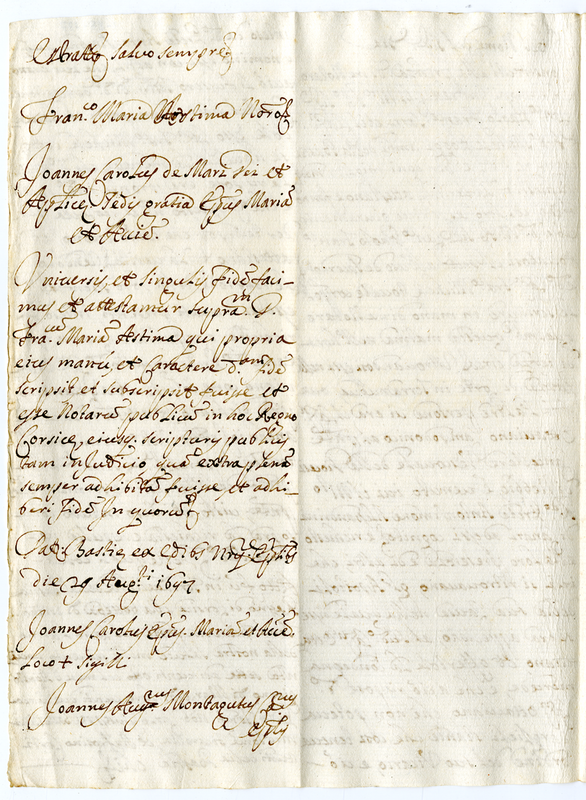 Estratto salvo sempre
Fran.co Maria Astima Notro
Joannes Carolus de Mari Dei et
Applice Sedis gratia Epus Maria
et Accie.
Universis, et singulis fidē faci-
mus et attestamur supram D.
Fra.cum Mariā Astima qui propria
eius manu, et caractere d.am fidē
scripsit et subscripsit fuisse et
esse Notarū publicū in hoc Regno
Corsice, eiusq. scripturis publicis
tam in Judicio quā extra plenā
semper adhibitā fuisse, et adhi-
beri fidē In quorum
Dat. Bastie ex edibs Epalibs
die 29 Augti 1697
Joannes Carolus Epus. Maria et Accie.
Loco + sigilli
Joannes Montagutus